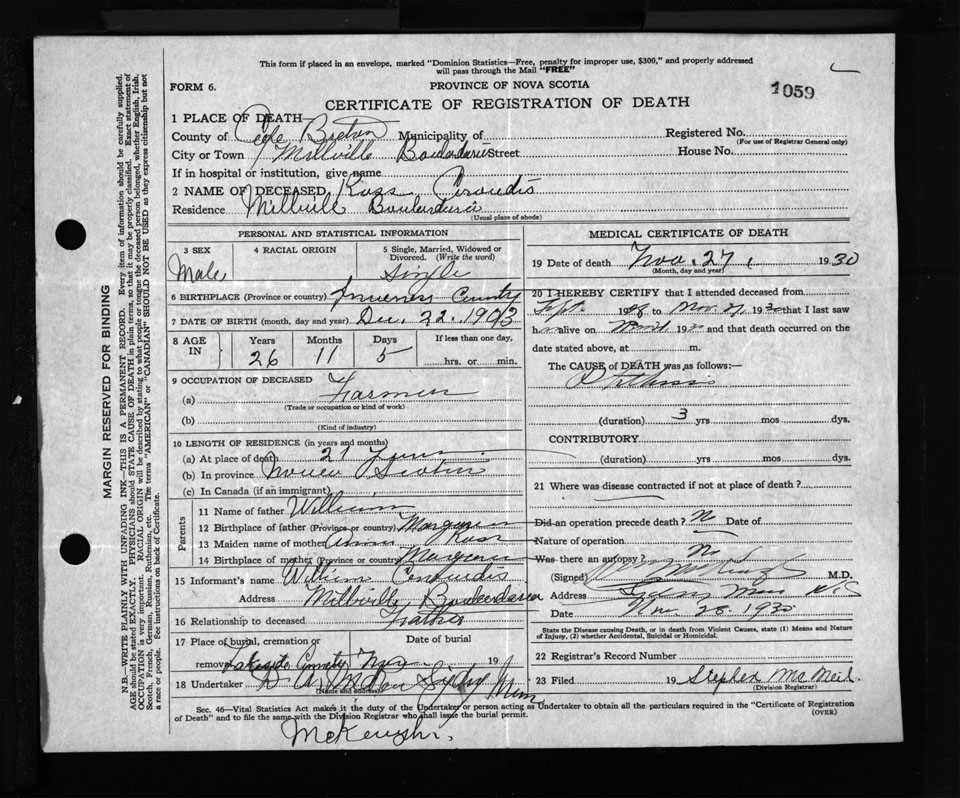 This form if placed in an envelope, marked "Dominion Statistics—Free, penalty for improper use, $300," and properly addressed
will pass through the Mail "FREE"
FORM 6.
PROVINCE OF NOVA SCOTIA
1059
CERTIFICATE OF REGISTRATION OF DEATH
1 PLACE OF DEATH
County of Cape Breton Municipality of Registered No.
(For use of Registrar General only)
City or Town Millville Boularderie Street House No.
If in hospital or institution, give name
2 NAME OF DECEASED Ross
Residence Millville Boularderie
(Usual place of abode)
PERSONAL AND STATISTICAL INFORMATION
3 SEX
Male
4 RACIAL ORIGIN
5 Single, Married, Widowed or Divorced. (Write the word)
Single
6 BIRTHPLACE (Province or country) Inverness County
7 DATE OF BIRTH (month, day and year) Dec. 22. 1903
8 AGE IN
Years Months Days If less than one day,
26 11 5 hrs. or min.
9 OCCUPATION OF DECEASED
(a) Farmer
(Trade or occupation or kind of work)
(b)
(Kind of industry)
10 LENGTH OF RESIDENCE (in years and months)
(a) At place of death 21 years
(b) In province Nova Scotia
(c) In Canada (if an immigrant)
Parents
11 Name of father William
12 Birthplace of father (Province or country) Margaree
13 Maiden name of mother Ross
14 Birthplace of mother (Province or country) Margaree
15 Informant's name William
Address Millville, Boularderie
16 Relationship to deceased Father
17 Place of burial, cremation or removal Lakeside Cemetery
Date of burial 19
18 Undertaker Sydney Mines
(Name and address)
MEDICAL CERTIFICATE OF DEATH
19 Date of death Nov. 27, 1930
(Month, day and year)
20 I HEREBY CERTIFY that I attended deceased from
Sept. 1928 to Nov. 27, 1930 that I last saw
h alive on 19 and that death occurred on the
date stated above, at m.
The CAUSE of DEATH was as follows:—
Phthisis
(duration) 3 yrs mos dys.
CONTRIBUTORY
(duration) yrs mos dys.
21 Where was disease contracted if not at place of death?
Did an operation precede death? No Date of
Nature of operation
Was there an autopsy? No
(Signed) M.D.
Address Mines N.S
Date Nov. 28. 1930
State the Disease causing Death, or in death from Violent Causes, state (1) Means and Nature of Injury, (2) whether Accidental, Suicidal or Homicidal.
22 Registrar's Record Number
23 Filed 19 Stephen McNeil.
(Division Registrar)
Sec. 46—Vital Statistics Act makes it the duty of the Undertaker or person acting as Undertaker to obtain all the particulars required in the "Certificate of Registration
of Death" and to file the same with the Division Registrar who shall issue the burial permit.
(OVER)
MARGIN RESERVED FOR BINDING
N.B.—WRITE PLAINLY WITH UNFADING INK—THIS IS A PERMANENT RECORD. Every item of information should be carefully supplied.
AGE should be stated EXACTLY. PHYSICIANS should STATE CAUSE OF DEATH in plain terms, so that it may be properly classified. Exact statement of
OCCUPATION is very important. RACIAL ORIGIN will be described by stating to what people or tongue the deceased person belonged, whether English, Irish,
Scotch, French, German, Russian, Ruthenian, etc. The terms "AMERICAN" or "CANADIAN" SHOULD NOT BE USED as they express citizenship but not
a race or people. See instructions on back of Certificate.